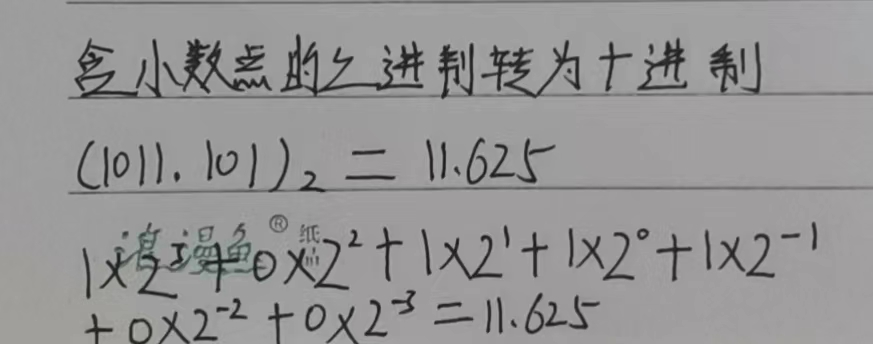 含小数点的2进制转为十进制
(1011.101)₂ = 11.625
1×2³+0×2²+1×2¹+1×2⁰+1×2⁻¹
+0×2⁻²+0×2⁻³=11.625
浪漫鱼®纸品